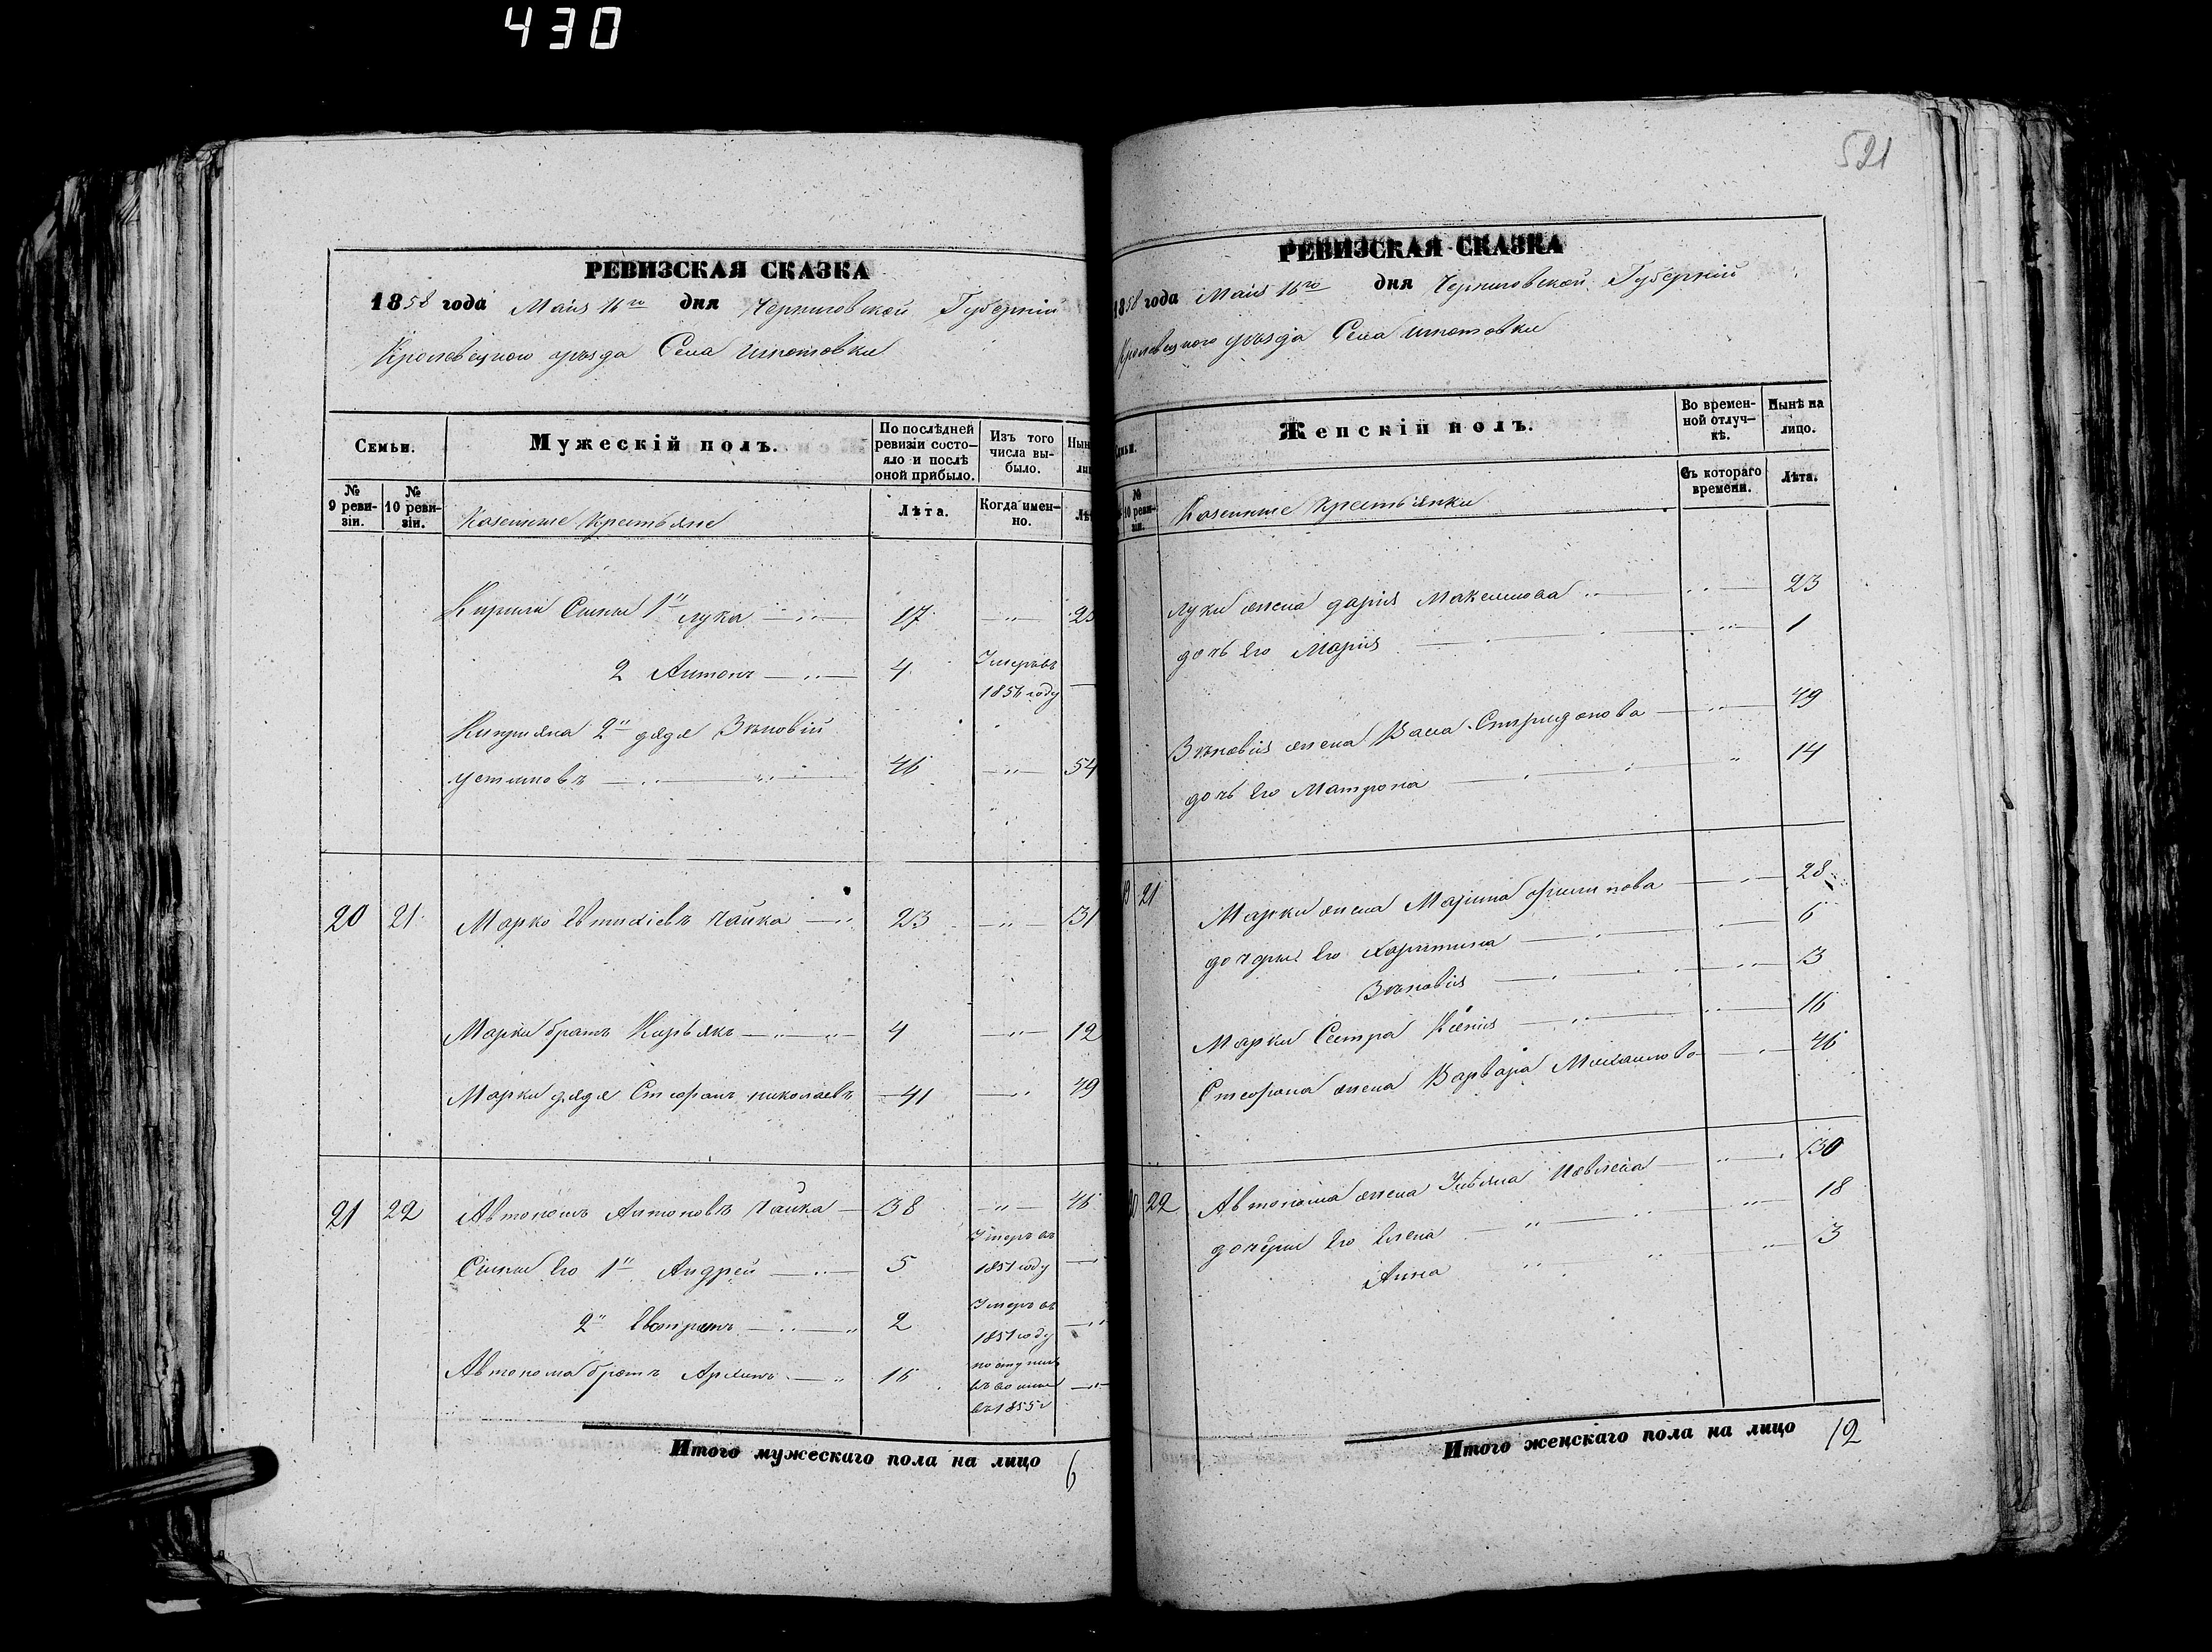 430
521
РЕВИЗСКАЯ СКАЗКА
1858 года Маія 16го дня Черниговской Губерніи
Кролевецкого уѣзда Села
Семьи.
Мужескій полъ.
По послѣдней ревизіи состояло и послѣ оной прибыло.
Изъ того числа выбыло.
Нын
лиц
№ 9 ревизіи.
№ 10 ревизіи.
Казенные Крестьяне
Лѣта.
Когда именно.
Лѣ
Сыны 1й лука 17
2 Антонъ 4 Умеръ въ
185 году
2й дядя Зѣновій
Устимовъ 46 54
20 21 Марко Евтихіевъ Чайка 23 31
Марки братъ Кирьякъ 4 12
Марки дядя Стефанъ николаевъ 41 49
21 22 Автономъ Антоновъ Чайка 38 46
Сыны Его 1й Андрей 5 Умеръ въ
1851 году
2й 2 Умеръ въ
1851 году
Автонома братъ 16 поступилъ
въ
въ 1855 г
Итого мужескаго пола на лицо 6
РЕВИЗСКАЯ СКАЗКА
1858 года Маія 16го дня Черниговской Губерніи
Кролевецкого уѣзда Села
емьи.
Женскій полъ.
Во временной отлучкѣ.
Нынѣ на лицо.
№ 10 ревизіи.
Казенные Крестьянки
Съ котораго времени.
Лѣта.
луки жена дарія Максимова 23
дочь Его Марія 1
Зѣновія жена Васа Спиридонова 49
дочь Его Матрона 14
21 Марки жена Марина филипова 28
дочери Его Харитина 6
Зѣновія 3
Марки Сестра Ксенія 16
Стефана жена Варвара Михаилова 46
22 Автонома жена Ульяна 30
дочери Его Елена 18
Анна 3
Итого женскаго пола на лицо 12